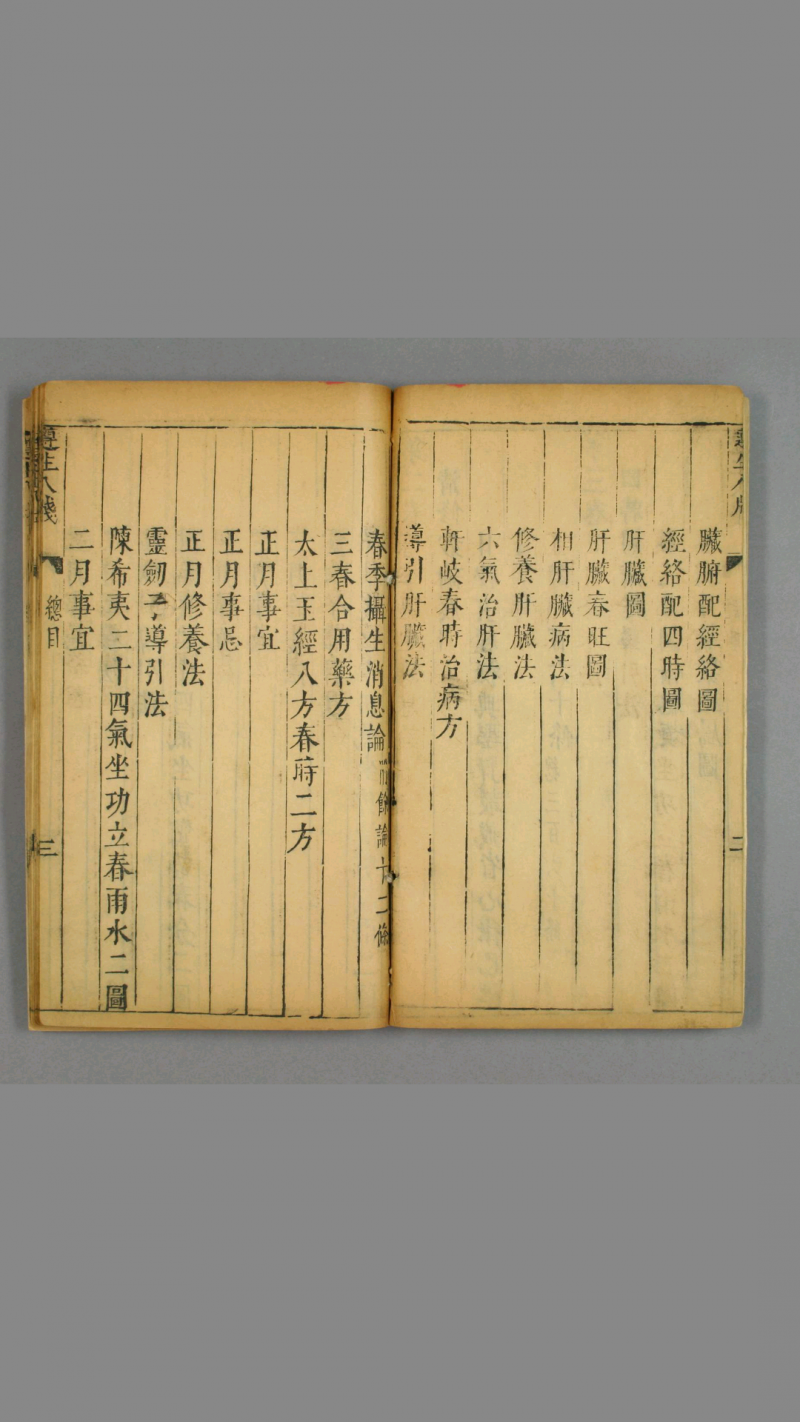 臟腑配經絡圖
經絡配四時圖
肝臟圖
肝臟春旺圖
相肝臟病法
修養肝臟法
六氣治肝法
軒岐春時治病方
導引肝臟法
二
春季攝生消息論
三春合用藥方
太上玉經八方春時二方
正月事宜
正月事忌
正月修養法
靈劒子導引法
陳希夷二十四氣坐功立春雨水二圖
二月事宜
遵生八牋
總目
三